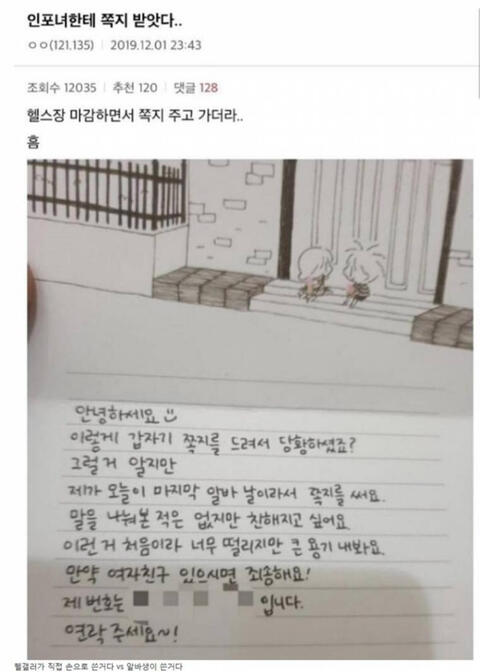 인포녀한테 쪽지 받앗다..
ㅇㅇ(121.135) | 2019.12.01 23:43
조회수 12035 | 추천 120 | 댓글 128
헬스장 마감하면서 쪽지 주고 가더라..
흠
안녕하세요
이렇게 갑자기 쪽지를 드려서 당황하셨죠?
그럴 거 알지만
제가 오늘이 마지막 알바 날이라서 쪽지를 써요.
말을 나눠본 적은 없지만 친해지고 싶어요.
이런 거 처음이라 너무 떨리지만 큰 용기 내봐요.
만약 여자친구 있으시면 죄송해요!
제 번호는 입니다.
연락 주세요~!
헬갤러가 직접 손으로 쓴거다 vs 알바생이 쓴거다